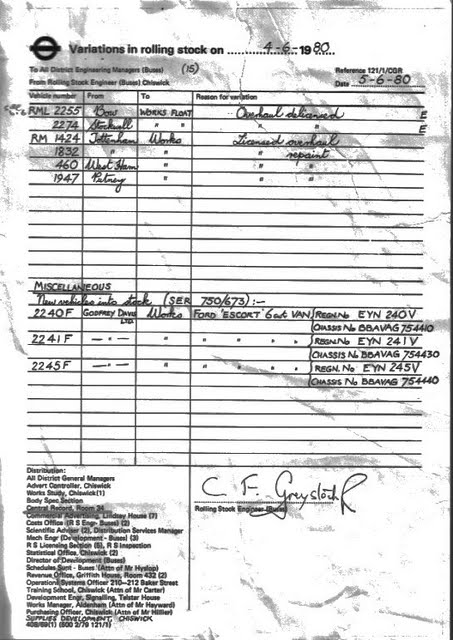 Variations in rolling stock on 4-6-1980
To All District Engineering Managers (Buses) (15)
Reference 121/1/CGR
From Rolling Stock Engineer (Buses) Chiswick
Date 5-6-80
Vehicle number From To Reason for variation
RML 2255 Bow WORKS FLOAT Overhaul delicensed E
2274 Stockwell " " " " E
RM 1424 Tottenham Works Licensed overhaul
1832 " " " repaint
460 West Ham " " "
1947 Putney " " "
MISCELLANEOUS
New vehicles into stock (SER 750/673) :-
2240F GODFREY DAVIS LTD. Works FORD 'ESCORT' 6cwt VAN REGN. No EYN 240V
CHASSIS No BBAVAG 754410
2241F — " — " " " " " REGN. No EYN 241V
CHASSIS No BBAVAG 754430
2245F — " — " " " " " REGN. No EYN 245V
CHASSIS No BBAVAG 754440
Distribution:
All District General Managers
Advert Controller, Chiswick
Works Study, Chiswick (1)
Body Spec Section
Central Record, Room 34
Commercial Advertising, Lindsey House (7)
Costs Office (R S Engr- Buses) (2)
Scientific Adviser (2), Distribution Services Manager
Mech Engr (Development - Buses) (3)
R S Licensing Section (5), R S Inspection
Statistical Office, Chiswick (2)
Director of Development (Buses)
Schedules Supt - Buses (Attn of Mr Hyslop)
Revenue Office, Griffith House, Room 432 (2)
Operational Systems Officer 210-212 Baker Street
Training School, Chiswick (Attn of Mr Carter)
Development Engr, Signalling, Telstar House
Works Manager, Aldenham (Attn of Mr Hayward)
Purchasing Officer, Chiswick (Attn of Mr Hillier)
SUPPLIES DEVELOPMENT, CHISWICK
C F Greystock
Rolling Stock Engineer (Buses)